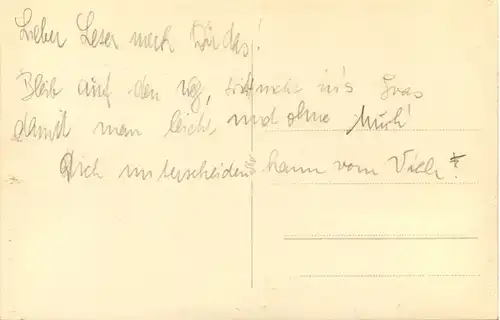 Lieber Leser merk Dir das!
Bleib auf den Weg, tritt nicht in's Gras
damit man leicht und ohne Müh'
Dich unterscheiden kann vom Vieh!